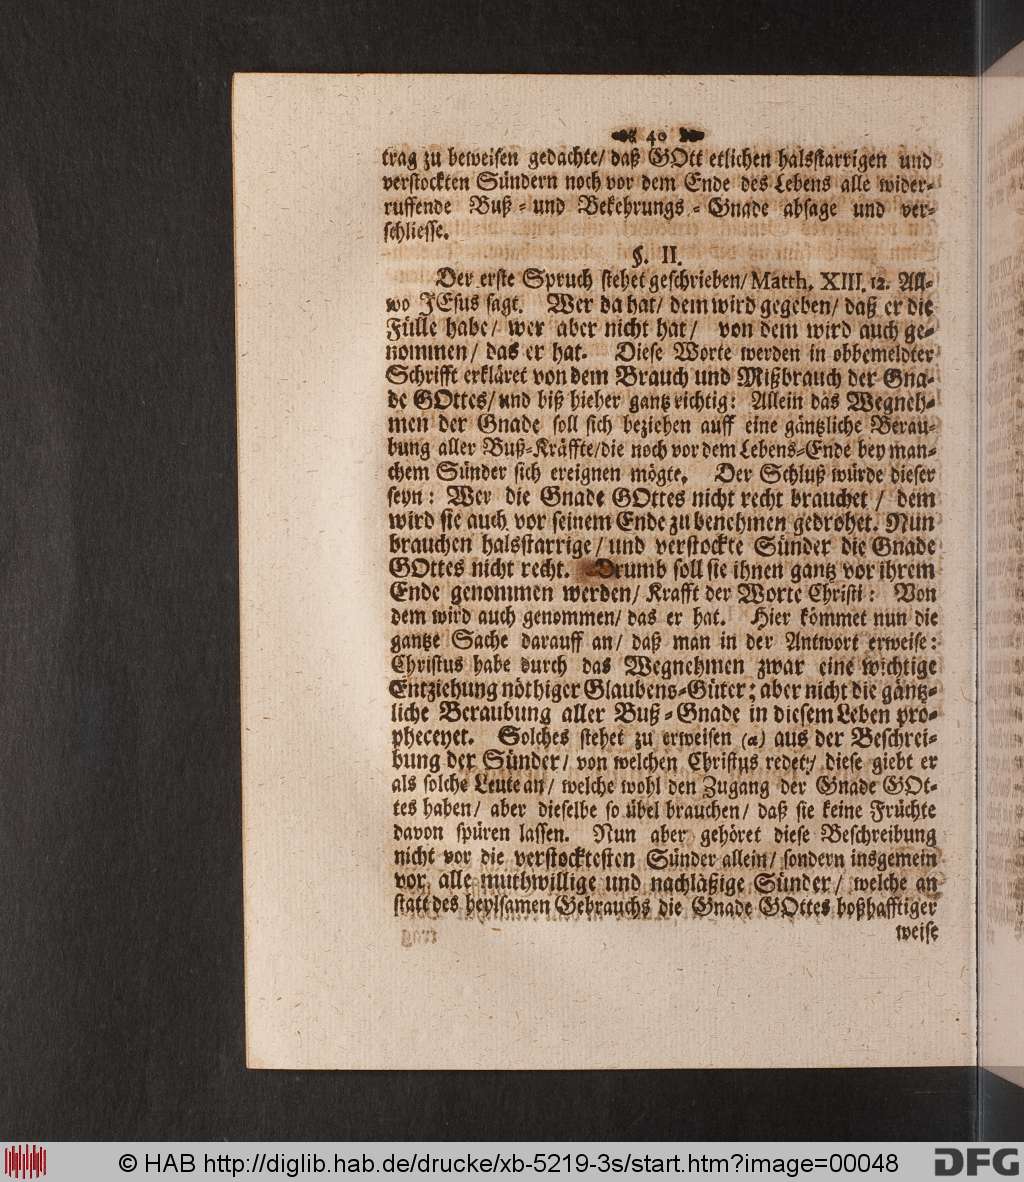 40
trag zu beweisen gedachte/ daß GOtt etlichen halsstarrigen und
verstockten Sündern noch vor dem Ende des Lebens alle wider-
ruffende Buß- und Bekehrungs-Gnade absage und ver-
schliesse.
§. II.
Der erste Spruch stehet geschrieben/ Matth. XIII. 12. All-
wo JEsus sagt. Wer da hat/ dem wird gegeben/ daß er die
Fülle habe/ wer aber nicht hat/ von dem wird auch ge-
nommen/ das er hat. Diese Worte werden in obbemeldter
Schrifft erkläret von dem Brauch und Mißbrauch der Gna-
de GOttes/ und biß hieher gantz richtig: Allein das Wegneh-
men der Gnade soll sich beziehen auff eine gäntzliche Berau-
bung aller Buß-Kräffte/ die noch vor dem Lebens-Ende bey man-
chem Sünder sich ereignen mögte. Der Schluß würde dieser
seyn: Wer die Gnade GOttes nicht recht brauchet / dem
wird sie auch vor seinem Ende zu benehmen gedrohet. Nun
brauchen halsstarrige/ und verstockte Sünder die Gnade
GOttes nicht recht. Drumb soll sie ihnen gantz vor ihrem
Ende genommen werden/ Krafft der Worte Christi: Von
dem wird auch genommen/ das er hat. Hier kömmet nun die
gantze Sache darauff an/ daß man in der Antwort erweise:
Christus habe durch das Wegnehmen zwar eine wichtige
Entziehung nöthiger Glaubens-Güter; aber nicht die gäntz-
liche Beraubung aller Buß-Gnade in diesem Leben pro-
pheceyet. Solches stehet zu erweisen (a) aus der Beschrei-
bung der Sünder/ von welchen Christus redet/ diese giebt er
als solche Leute an/ welche wohl den Zugang der Gnade GOt-
tes haben/ aber dieselbe so übel brauchen/ daß sie keine Früchte
davon spüren lassen. Nun aber gehöret diese Beschreibung
nicht vor die verstocktesten Sünder allein/ sondern insgemein
vor alle muthwillige und nachläßige Sünder/ welche an
statt des heylsamen Gebrauchs die Gnade GOttes boßhafftiger
weise
© HAB http://diglib.hab.de/drucke/xb-5219-3s/start.htm?image=00048
DFG